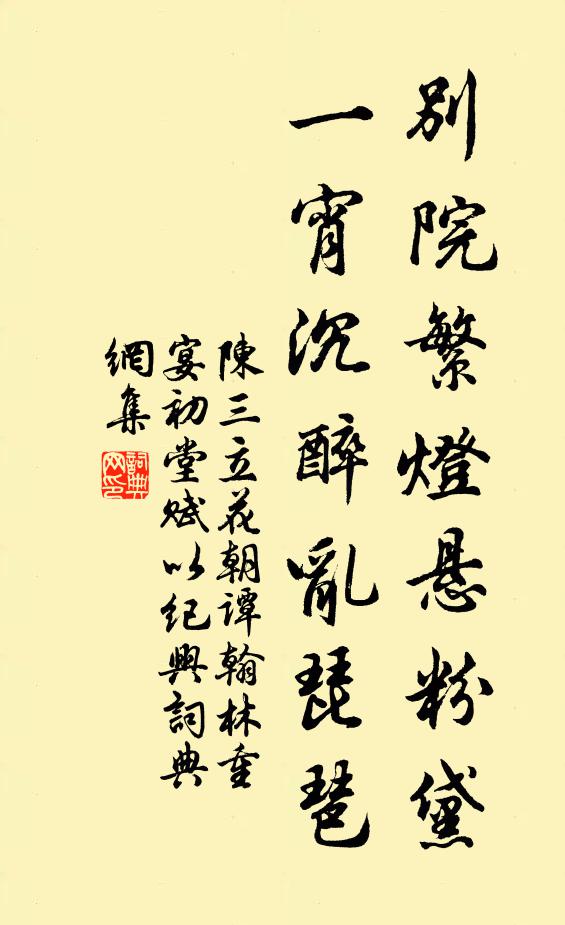 別院繁燈悬粉黛
一宵沉醉亂琵琶
陳三立花朝谭翰林重
宴初堂赋以纪興詞典
網集
詞典網印